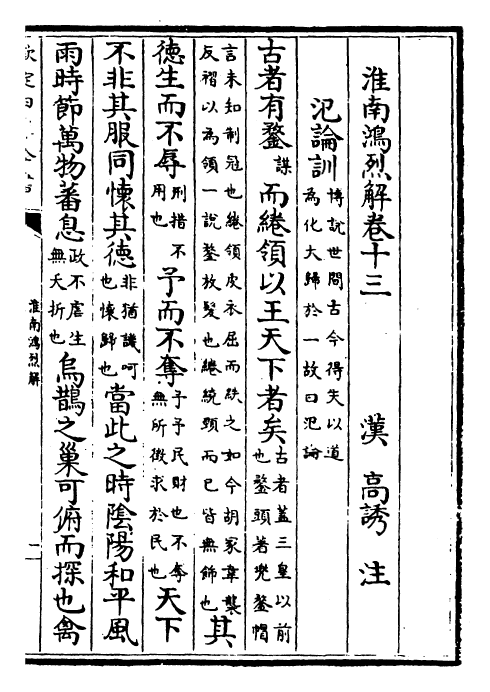 淮南鴻烈解卷十三　漢　高誘　注
氾論訓博說世間古今得失以道為化大歸於一故曰氾論
古者有鍪謀而綣領以王天下者矣古者蓋三皇以前也鍪頭著兜鍪帽
言未知制冠也綣領皮衣屈而紩之如今胡家韋襲反褶以為領一說鍪放髮也綣統頸而已皆無飾也其
德生而不辱刑措不用也予而不奪予予民財也不奪無所徵求於民也天下
不非其服同懷其德非猶譏呵也懷歸也當此之時陰陽和平風
雨時節萬物蕃息政不虐生無夭折也烏鵲之巢可俯而探也禽
淮南鴻烈解
二